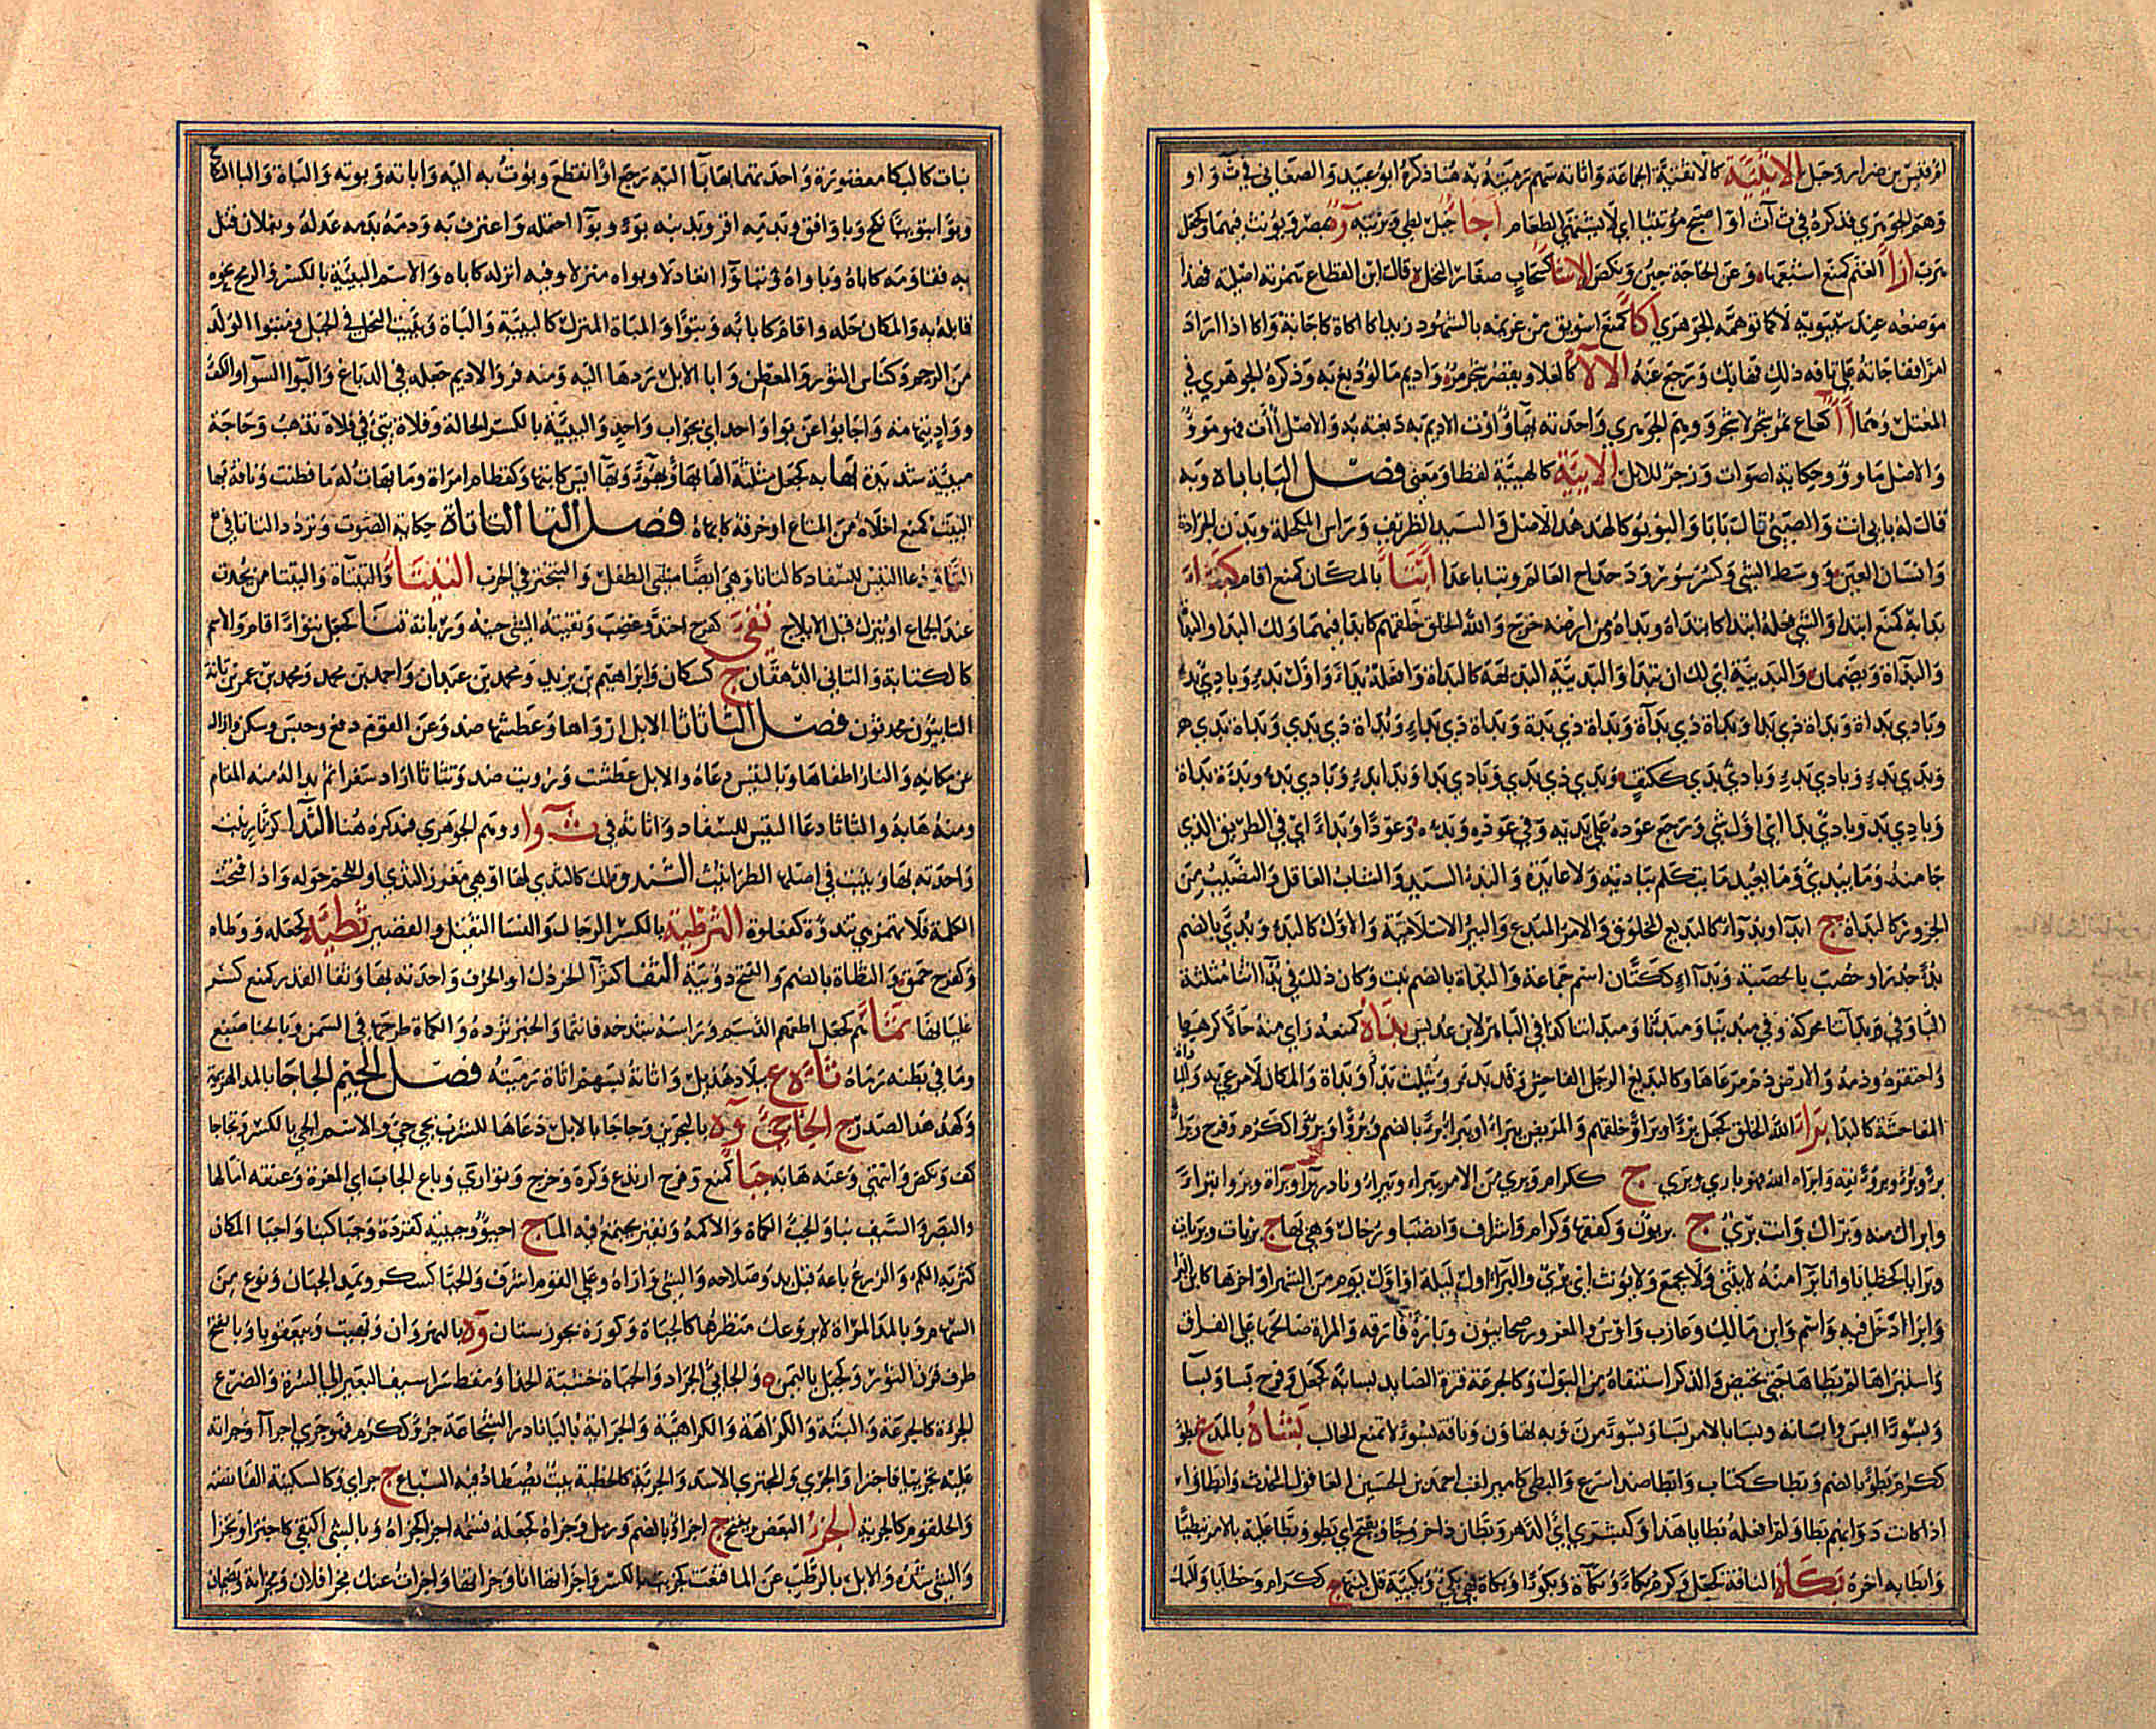 امرؤ قيس بن ضرار وجبل الاثئية كالاثفية الجماعة واثاته بسهم رميته به هنا ذكره ابو عبيد والصغاني في ث و ا و
وهم الجوهري فذكره في ث ا ث ا واصبح مؤتثئا اي لا يشتهي الطعام اجا جبل لطي وبزنته ة بمصر ويؤنث فيهما وكجعل
هرب ازا الغنم كمنع اشبعها وعن الحاجة جبن ونكص الاشا كسحاب صغار النخل قال ابن القطاع همزته اصلية فهذا
موضعه عند سيبويه لا كما توهمه الجوهري اكا كمنع استوثق من غريمه بالشهود زيد اكا اكاة كاجابة واكا اذا اراد
امرا ففاجاته على تافه ذلك فهابك ورجع عنه الالا كالعلا ويقصر شجر مر واديم مالوء دبغ به وذكره الجوهري في
المعتل وهما اا كعاع ثمر شجر لا شجر ووهم الجوهري واحدته بهاء واوت الاديم به دبغته به والاصل اات فهو مووء
والاصل ماووء وحكاية اصوات وزجر للابل الايية كالهيئة لفظا ومعنى فصل البا باباه وبه
قال له بابي انت والصبي قال بابا والبؤبؤ كالهدهد الاصل والسيد الظريف وراس المكحلة وبدن الجرادة
وانسان العين ووسط الشي وكسرسور ودحداح العالم وتبابا عدا بتا بالمكان كمنع اقام كبثا
بدا به كمنع ابتدا والشي فعله ابتدا كابداه وابتداه ومن ارضه خرج والله الخلق خلقهم كابدا فيهما ولك البدا والبداة
والبداة ويضمان والبديئة اي لك ان تبدا والبديئة البديهة كالبداة وافعله بداء واول بدء وبادي بدء
وبادي بداة وبداة ذي بدا وبداة ذي بداة وبداة ذي بدءة وبداة ذي بداء وبداة ذي بدي وبداة بدي
وبدي بدء وبادي بدء وبادئ بدي ككتف وبدي ذي بدي وبادي بدا وبدا بدء وبادي بدء وبدءة بداة
وبادي بد وبادي بدا اي اول شي ورجع عوده على بدئه وفي عوده وبدئه وعودا وبداء اي في الطريق الذي
جا منه وما يبدئ وما يعيد ما يتكلم ببادئة ولا عائدة والبدء السيد والشاب العاقل والنصيب من
الجزور كالبداة ج ابدا وبدوء وكالبديع المخلوق والامر المبدع والبئر الاسلامية والاول كالبدء وبدئ بالضم
بدءا جدر او حصب بالحصبة وبداء ككتان اسم جماعة والبداة بالضم نبت وكان ذلك في بداتنا مثلثة
البا وفي بداتنا محركة وفي مبدئنا ومبدئنا ومبداتنا كذا في الباهر لابن عديس بذاه كمنعه راى منه حالا كرهها
واحتقره وذمه والارض ذم مرعاها وكالبديع الرجل الفاحش وقد بذء ويثلث بذاء وبذاة والمكان لا مرعى به والمباذاة
المفاحشة كالبذا برا الله الخلق كجعل برءا وبروءا خلقهم والمريض يبرا ويبرء برءا بالضم وبروءا وبرؤ ككرم وفرح برا
برءا وبرؤا وبروءا نقه وابراه الله فهو باري وبري ج ككرام وبري من الامر يبرا ويبرء نادر براء وبراة وبرؤا تبرا
وابراك منه وبراك وانت بري ج بريون وكفقها وكرام واشراف وانصبا ورخال وهي بها ج بريات وبريات
وبرايا كخطايا وانا برا منه لا يثنى ولا يجمع ولا يؤنث اي بري والبرا اول ليلة او اول يوم من الشهر او اخرها كابن البرا
وابرا دخل فيه واسم وابن مالك وعازب واوس والمعرور صحابيون وباراه فارقه والمراة صالحها على الفراق
واستبراها لم يطاها حتى تحيض والذكر استنقاه من البول وكالجرعة قترة الصايد بسا به كجعل وفرح بسا وبسا
وبسوءا انس وابسانه وبسا بالامر بسا وبسوءا مرن وبه تهاون وناقة بسوء لا تمنع الحالب بشاءه بالمد ع بطؤ
ككرم بطؤا بالضم وبطاء ككتاب وابطا ضد اسرع والبطي كامير لقب احمد بن الحسين العاقولي المحدث وابطؤا
اذا كانت دوابهم بطاء ولم افعله بطا يا هذا وكبشرى اي الدهر وبطان ذا خروجا ويفتح اي بطؤ وبطا عليه بالامر تبطيئا
وابطا به اخره بكات الناقة كجعل وكرم بكا وبكاءة وبكوءا وبكاء فهي بكئ وبكيئة قل لبنها ج ككرام وخطايا والبكء
نبات كالبكا مقصورة واحدتهما بهاء با اليه رجع او انقطع وبؤت به اليه واباته وبوته والباة والبا النكاح
وبوا تبويئا نكح وبا وافق وبدمه اقر وبذنبه بوءا وبواء احتمله واعترف به ودمه بدمه عدله وبفلان قتل
به فقاومه كاباه وباواه وتباوا تعادلا وبواه منزلا وفيه انزله كاباه والاسم البيئة بالكسر والرمح نحوه
قابله به والمكان حله واقام كابا به وتبوا والمباة المنزل كالبيئة والباة وبيت النحل في الجبل ومتبوا الولد
من الرحم وكناس الثور والمعطن وابا الابل ردها اليه ومنه فر والاديم جعله في الدباغ والبوا السوا والكفو
وواد بتهامة واجابوا عن بوا واحد اي بجواب واحد والبيئة بالكسر الحالة وفلاة تبي في فلاة تذهب وحاجة
مبيئة شديدة بها به كجعل مثلثة الها بها وبهوءا وبها انس كابتها وكقطام امراة وما بهات له ما فطنت وناقة بها
البيت كمنع اخلاه من المتاع او خرقه كابهاه فصل التا التاتاة حكاية الصوت وتردد التاتا في
التا ودعا التيس للسفاد كالتاتا وهي ايضا مشي الطفل والتبختر في الحرب التيتا والتيتاة والتيتا من يحدث
عند الجماع او ينزل قبل الايلاج تفئ كفرح احتد وغضب وتفيئة الشي حينه وزمانه تنا كجعل تنوءا اقام والاسم
كالكتابة والتاني الدهقان ج كسكان وابراهيم بن يزيد ومحمد بن عبدان واحمد بن محمد ومحمد بن عمر بن تانة
التانيون محدثون فصل الثا ثاثا الابل ارواها وعطشها ضد وعن القوم دفع وحبس وسكن وازال
عن مكانه والنار اطفاها وبالتيس دعاه والابل عطشت ورويت ضد وتثاثا اراد سفرا ثم بدا له المقام
ومنه هابه والثاثا دعا التيس للسفاد واثاته في ث و ا ووهم الجوهري فذكره هنا الثدا كزنار نبت
واحدته بها وينبت في اصلها الطراثيث الثندوة لك كالثدي لها او هي مغرز الثدي او اللحم حوله واذا فتحت
الكلمة فلا تهمز هي ثندوة كفعلوة الثرطئة بالكسر الرجل والنسا الثقيل والقصير ثطئه كجعله ووطاه
وكفرح حمق والثطاة بالضم والفتح دويبة الثفا كقراء الخردل او الحرف واحدته بها وثفا القدر كمنع كسر
غليانها ثماهم كجعل اطعمهم الدسم وراسه شدخه فانثما والخبز ثرده والكماة طرحها في السمن وبالحنا صبغ
وما في بطنه رماه ثاءة ع ببلاد هذيل واثاته بسهم اثاة رميته فصل الجيم الجاجا بالمد الهزيمة
وكهدهد الصدر ج الجاجئ و ة بالبحرين وجاجا بالابل دعاها للشرب بجئ جئ والاسم الجئ بالكسر وتجاجا
كف ونكص وانتهى وعنه هابه جبا كمنع وفرح ارتدع وكره وخرج وتوارى وباع الجاب اي المغرة وعنقه امالها
والبصر والسيف نبا والجبء الكماة والاكمة ونقير يجتمع فيه الما ج اجبؤ وجبئة كقردة وجبا كنبا واجبا المكان
كثر به الكم والزرع باعه قبل بدو صلاحه والشي واراه وعلى القوم اشرف والجبا كسكر ويمد الجبان ونوع من
السهام وبالمد المراة لا يروعك منظرها كالجباة وكورة بخوزستان و ة بالنهروان وبهيت وببعقوبا وبالفتح
طرف قرن الثور وكجبل باليمن ة والجابي الجراد والجباة خشبة الحذا ومقط شراسيف البعير الى السرة والضرع
الجرءة كالجرعة والثبة والكراهة والكراهية والجراية باليا نادر الشجاعة جرؤ ككرم فهو جري ج اجراء وجراته
عليه تجريئا فاجترا والجري والمجتري الاسد والجرية كالخطية بيت يصطاد فيه السباع ج جرائي وكالسكينة القانصة
والحلقوم كالجرية الجزء البعض ويفتح ج اجزاء وبالضم ورمل وجزاه كجعله قسمه اجزا كجزاه وبالشي اكتفى كاجتزا وتجزا
والشي شده والابل بالرطب عن الما قنعت كجزئت بالكسر واجزاتها انا وجزاتها واجزات عنك مجزا فلان ومجزاته ويضمان